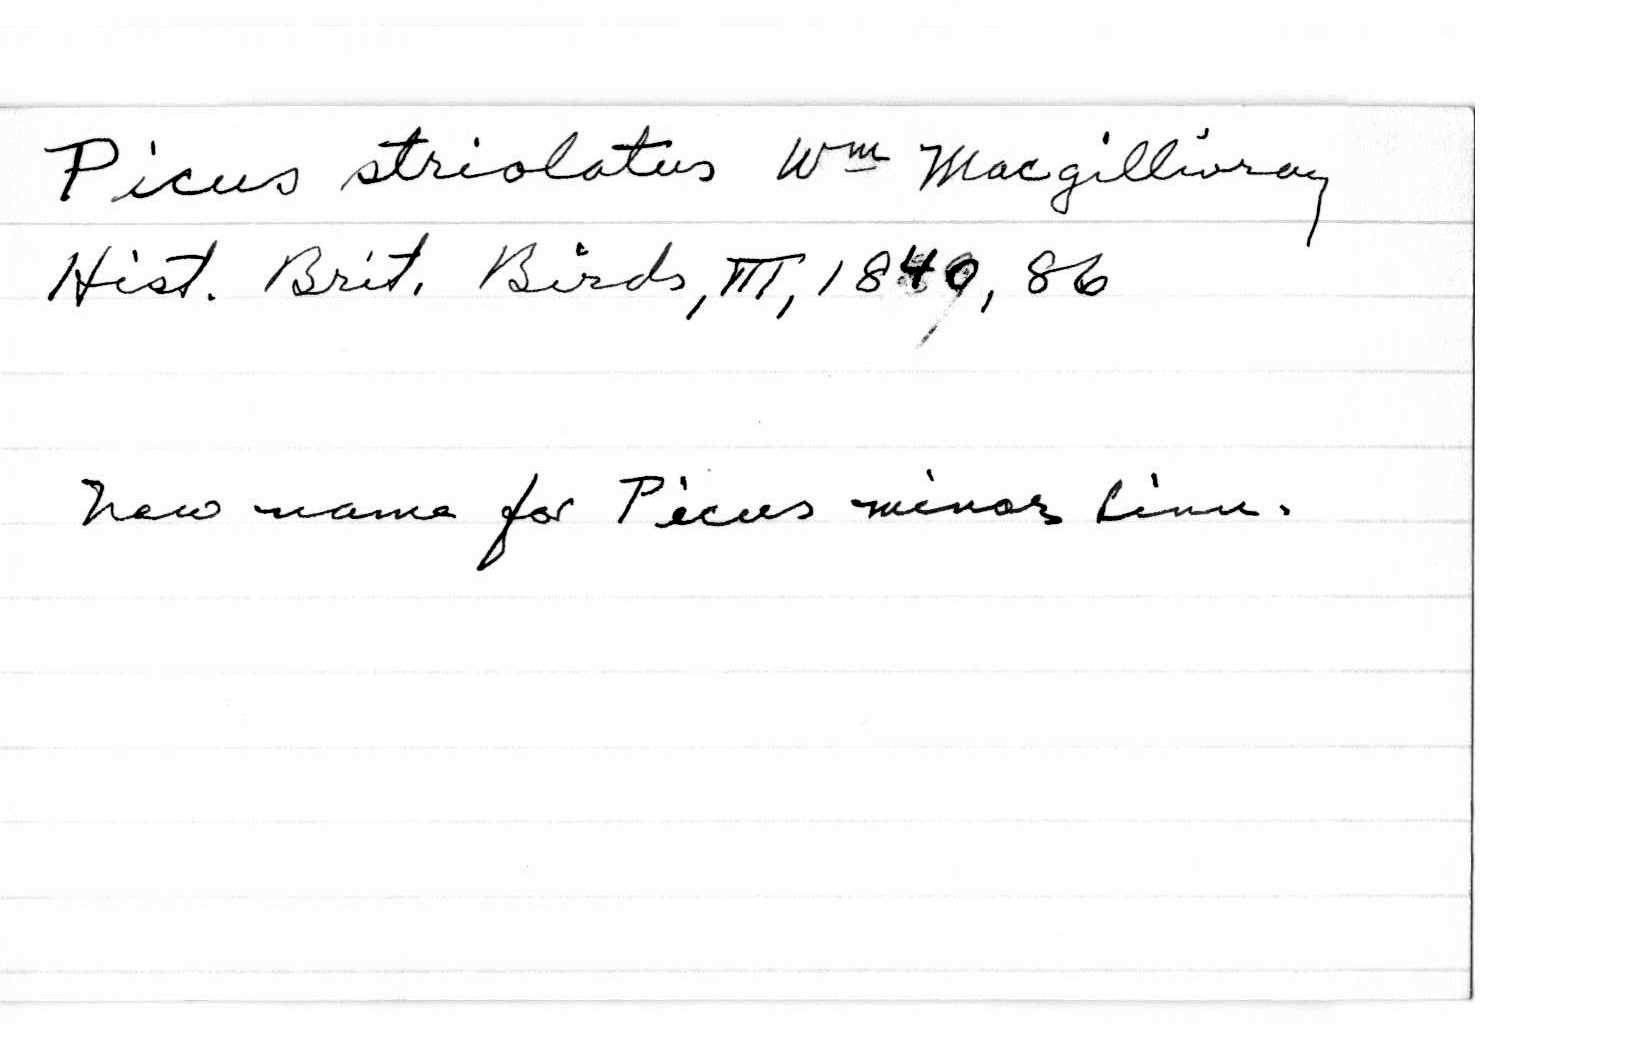 Picus striolatus Wm Macgillivray
Hist. Brit. Birds, III, 1840, 86
New name for Picus minor Linn.